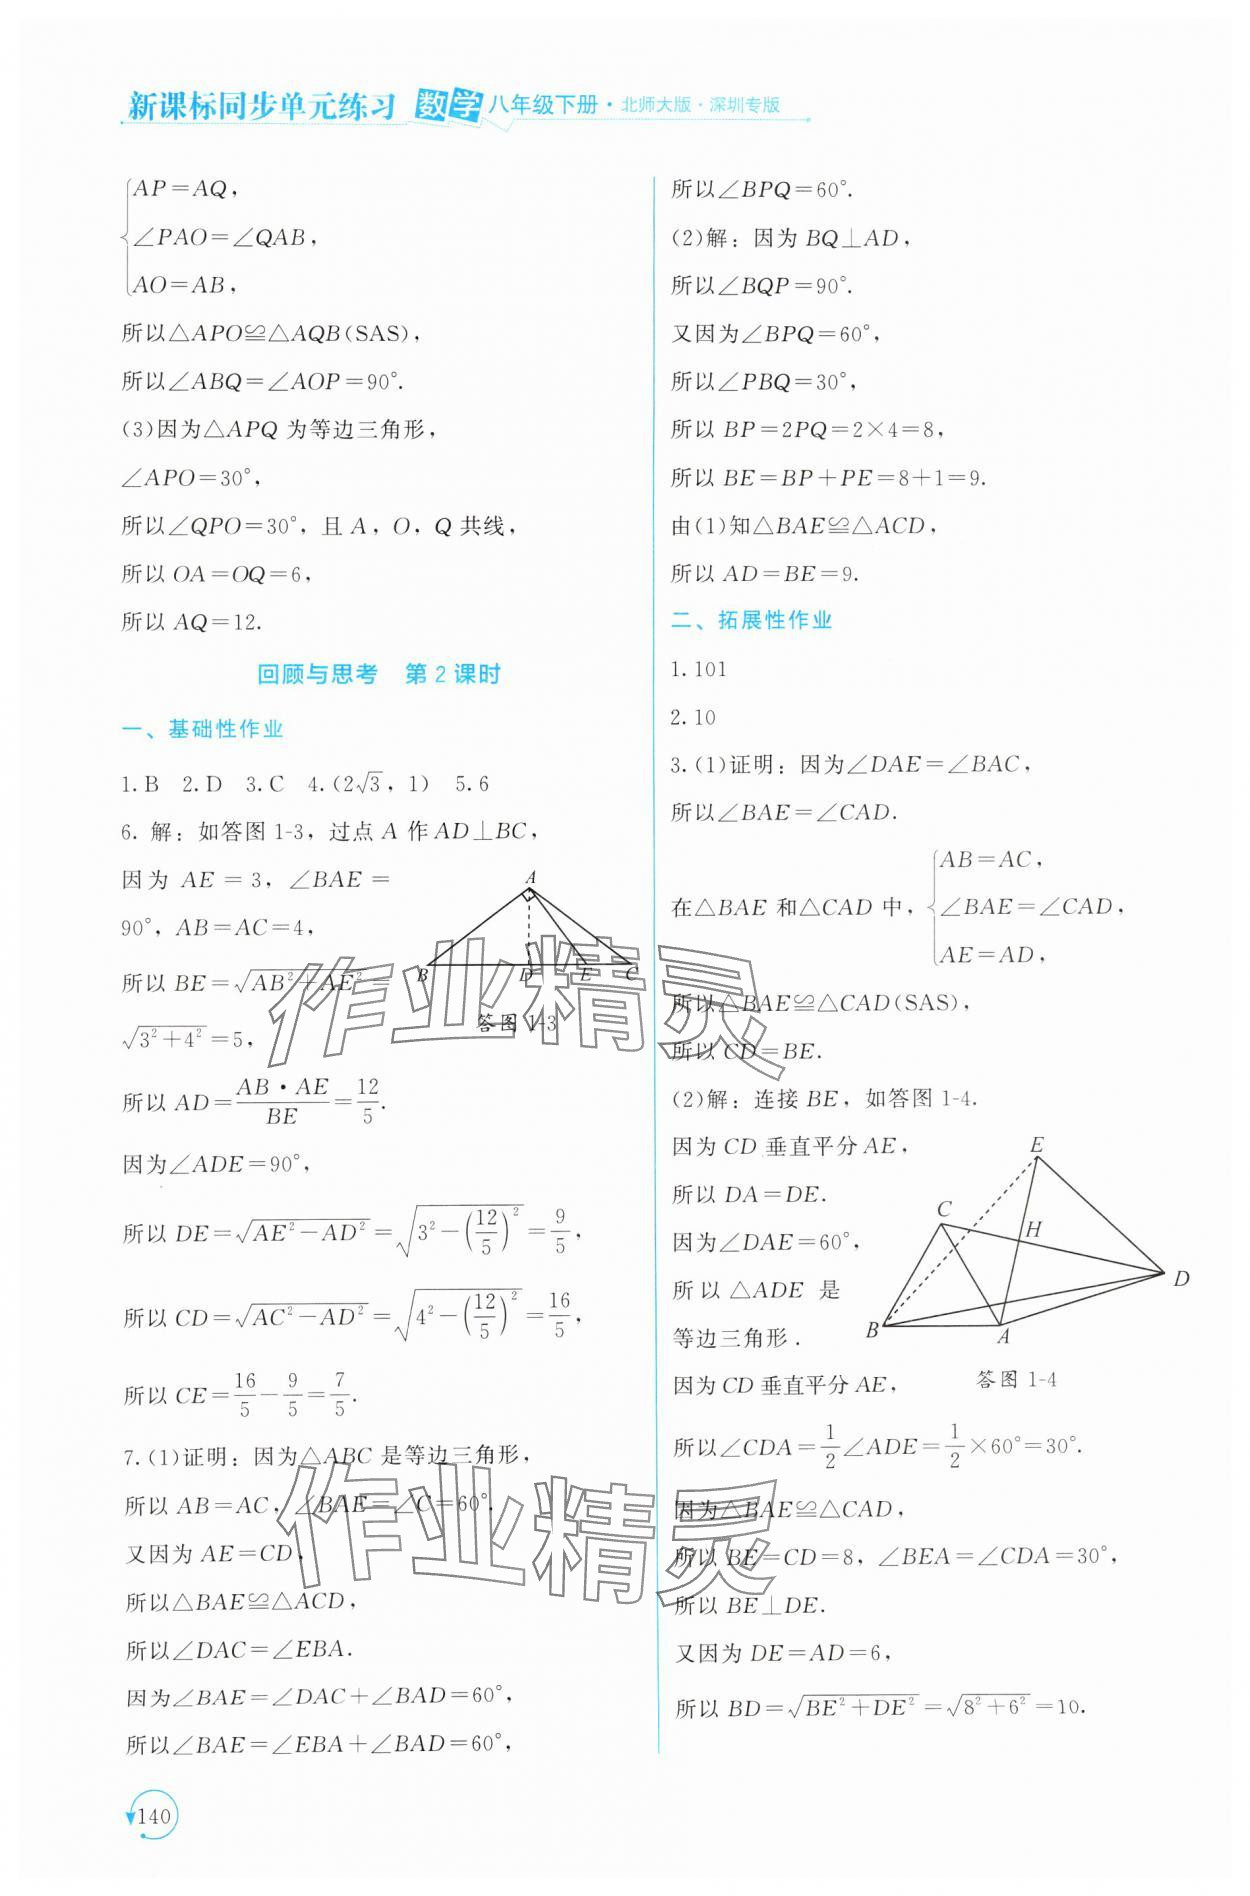 新课标同步单元练习 数学 八年级下册·北师大版·深圳专版
AP=AQ,
∠PAO=∠QAB,
AO=AB,
所以△APO≌△AQB(SAS),
所以∠ABQ=∠AOP=90°.
(3)因为△APQ 为等边三角形,
∠APO=30°,
所以∠QPO=30°, 且 A, O, Q 共线,
所以 OA=OQ=6,
所以 AQ=12.
回顾与思考 第 2 课时
一、基础性作业
1.B 2.D 3.C 4.(2√3, 1) 5.6
6. 解: 如答图 1-3, 过点 A 作 AD⊥BC,
因为 AE = 3, ∠BAE =
90°, AB=AC=4,
所以 BE=√(AB²+AE²)=
√(3²+4²)=5,
所以 AD=(AB·AE)/BE=12/5.
因为∠ADE=90°,
所以 DE=√(AE²-AD²)=√(3²-(12/5)²)=9/5,
所以 CD=√(AC²-AD²)=√(4²-(12/5)²)=16/5,
所以 CE=16/5-9/5=7/5.
A
B D E C
答图 1-3
7.(1)证明: 因为△ABC 是等边三角形,
所以 AB=AC, ∠BAE=∠C=60°.
又因为 AE=CD,
所以△BAE≌△ACD,
所以∠DAC=∠EBA.
因为∠BAE=∠DAC+∠BAD=60°,
所以∠BAE=∠EBA+∠BAD=60°,
所以∠BPQ=60°.
(2)解: 因为 BQ⊥AD,
所以∠BQP=90°.
又因为∠BPQ=60°,
所以∠PBQ=30°,
所以 BP=2PQ=2×4=8,
所以 BE=BP+PE=8+1=9.
由(1)知△BAE≌△ACD,
所以 AD=BE=9.
二、拓展性作业
1.101
2.10
3.(1)证明: 因为∠DAE=∠BAC,
所以∠BAE=∠CAD.
在△BAE 和△CAD 中,
AB=AC,
∠BAE=∠CAD,
AE=AD,
所以△BAE≌△CAD(SAS),
所以 CD=BE.
(2)解: 连接 BE, 如答图 1-4.
因为 CD 垂直平分 AE,
所以 DA=DE.
因为∠DAE=60°,
所以 △ADE 是
等边三角形.
因为 CD 垂直平分 AE,
E
C
H
D
B
A
答图 1-4
所以∠CDA=1/2∠ADE=1/2×60°=30°.
因为△BAE≌△CAD,
所以 BE=CD=8, ∠BEA=∠CDA=30°,
所以 BE⊥DE.
又因为 DE=AD=6,
所以 BD=√(BE²+DE²)=√(8²+6²)=10.
作业精灵
作业精灵
140